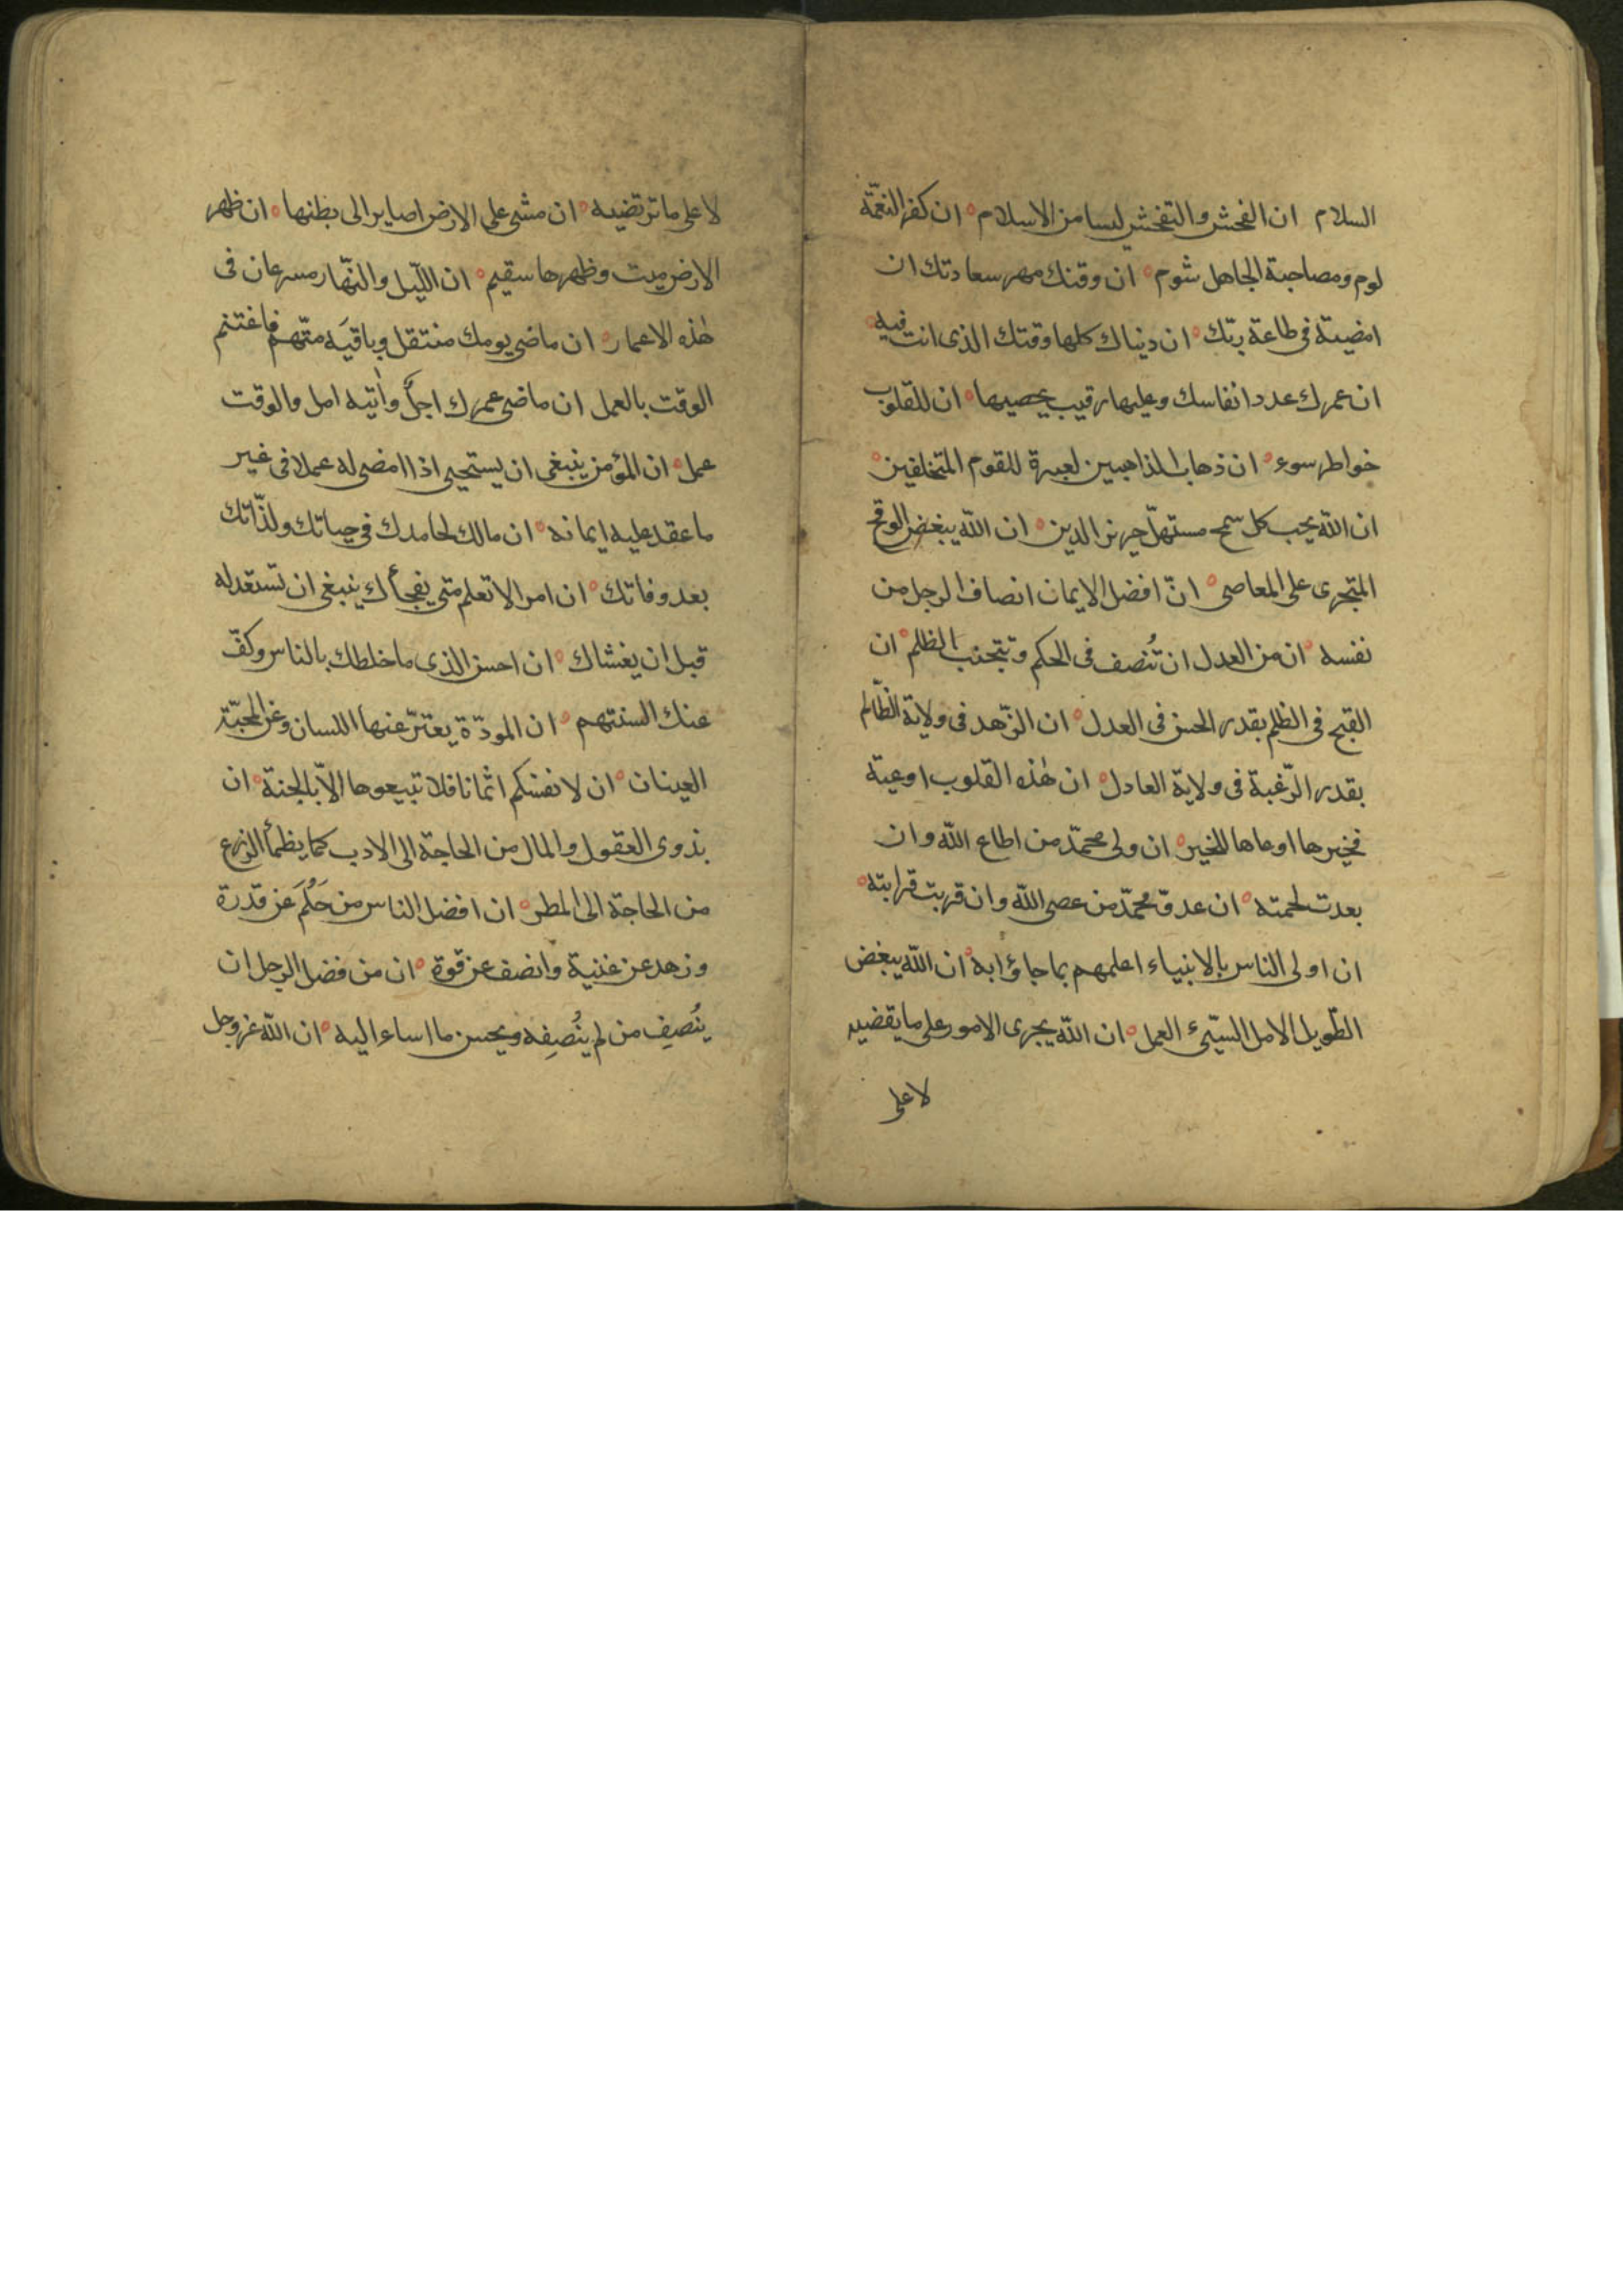 السلام ان الفحش والتفحش ليسا من الاسلام ان كفر النعمة
لوم ومصاحبة الجاهل شوم ان وقتك مهر سعادتك ان
امضيته فى طاعة ربّك ان دنياك كلها وقتك الذى انت فيه
ان عمرك عدد انفاسك وعليها رقيب يحصيها ان للقلوب
خواطر سوء ان ذهاب الذاهبين لعبرة للقوم المتخلفين
ان اللّه يحب كل سمح مستهلّ حريز الدين ان اللّه يبغض الوقح
المتجرى على المعاصى انّ افضل الايمان انصاف الرجل من
نفسه ان من العدل ان تُنصف فى الحكم وتتجنب الظلم ان
القبح فى الظلم بقدر الحسن فى العدل ان الزّهد فى ولاية الظّالم
بقدر الرّغبة فى ولاية العادل ان هٰذه القلوب اوعية
فخيرها اوعاها للخير ان ولى محمّد من اطاع اللّه وان
بعدت لحمته ان عدوّ محمّد من عصى اللّه وان قربت قرابته
ان اولى الناس بالانبياء اعلمهم بما جاؤا به ان اللّه يبغض
الطّويل الامل السيّئ العمل ان اللّه يجرى الامور على ما يقضيه
لا على
لا على ما ترتضيه ان مشى على الارض لصاير الى بطنها ان ظهر
الارض ميت وظهرها سقيم ان اللّيل والنّهار مسرعان فى
هٰذه الاعمار ان ماضى يومك منتقل وباقيَه متّهم فاغتنم
الوقت بالعمل ان ماضى عمرك اجلٌ وآتيه امل والوقت
عمل ان المؤمن ينبغى ان يستحيى اذا امضى له عملا فى غير
ما عقد عليه ايمانه ان مالك لحامدك فى حياتك ولذّاتك
بعد وفاتك ان امرا لا تعلم متى يفجأك ينبغى ان تستعد له
قبل ان يغشاك ان احسن الذى ما خلطك بالناس وكفّ
عنك السنتهم ان المودّة يعتبّر عنها اللسان وعن المحبّة
العينان ان لانفسكم اثمانا فلا تبيعوها الاّ بالجنة ان
بذوى العقول والمال من الحاجة الى الادب كما يظمأ الزرع
من الحاجة الى المطر ان افضل الناس من حَلُمَ عن قدرة
وزهد عن غنية وانصف عن قوة ان من فضل الرجل ان
يُنصِف من لم يُنصِفه ويحسن ما اساء اليه ان اللّه عز وجل